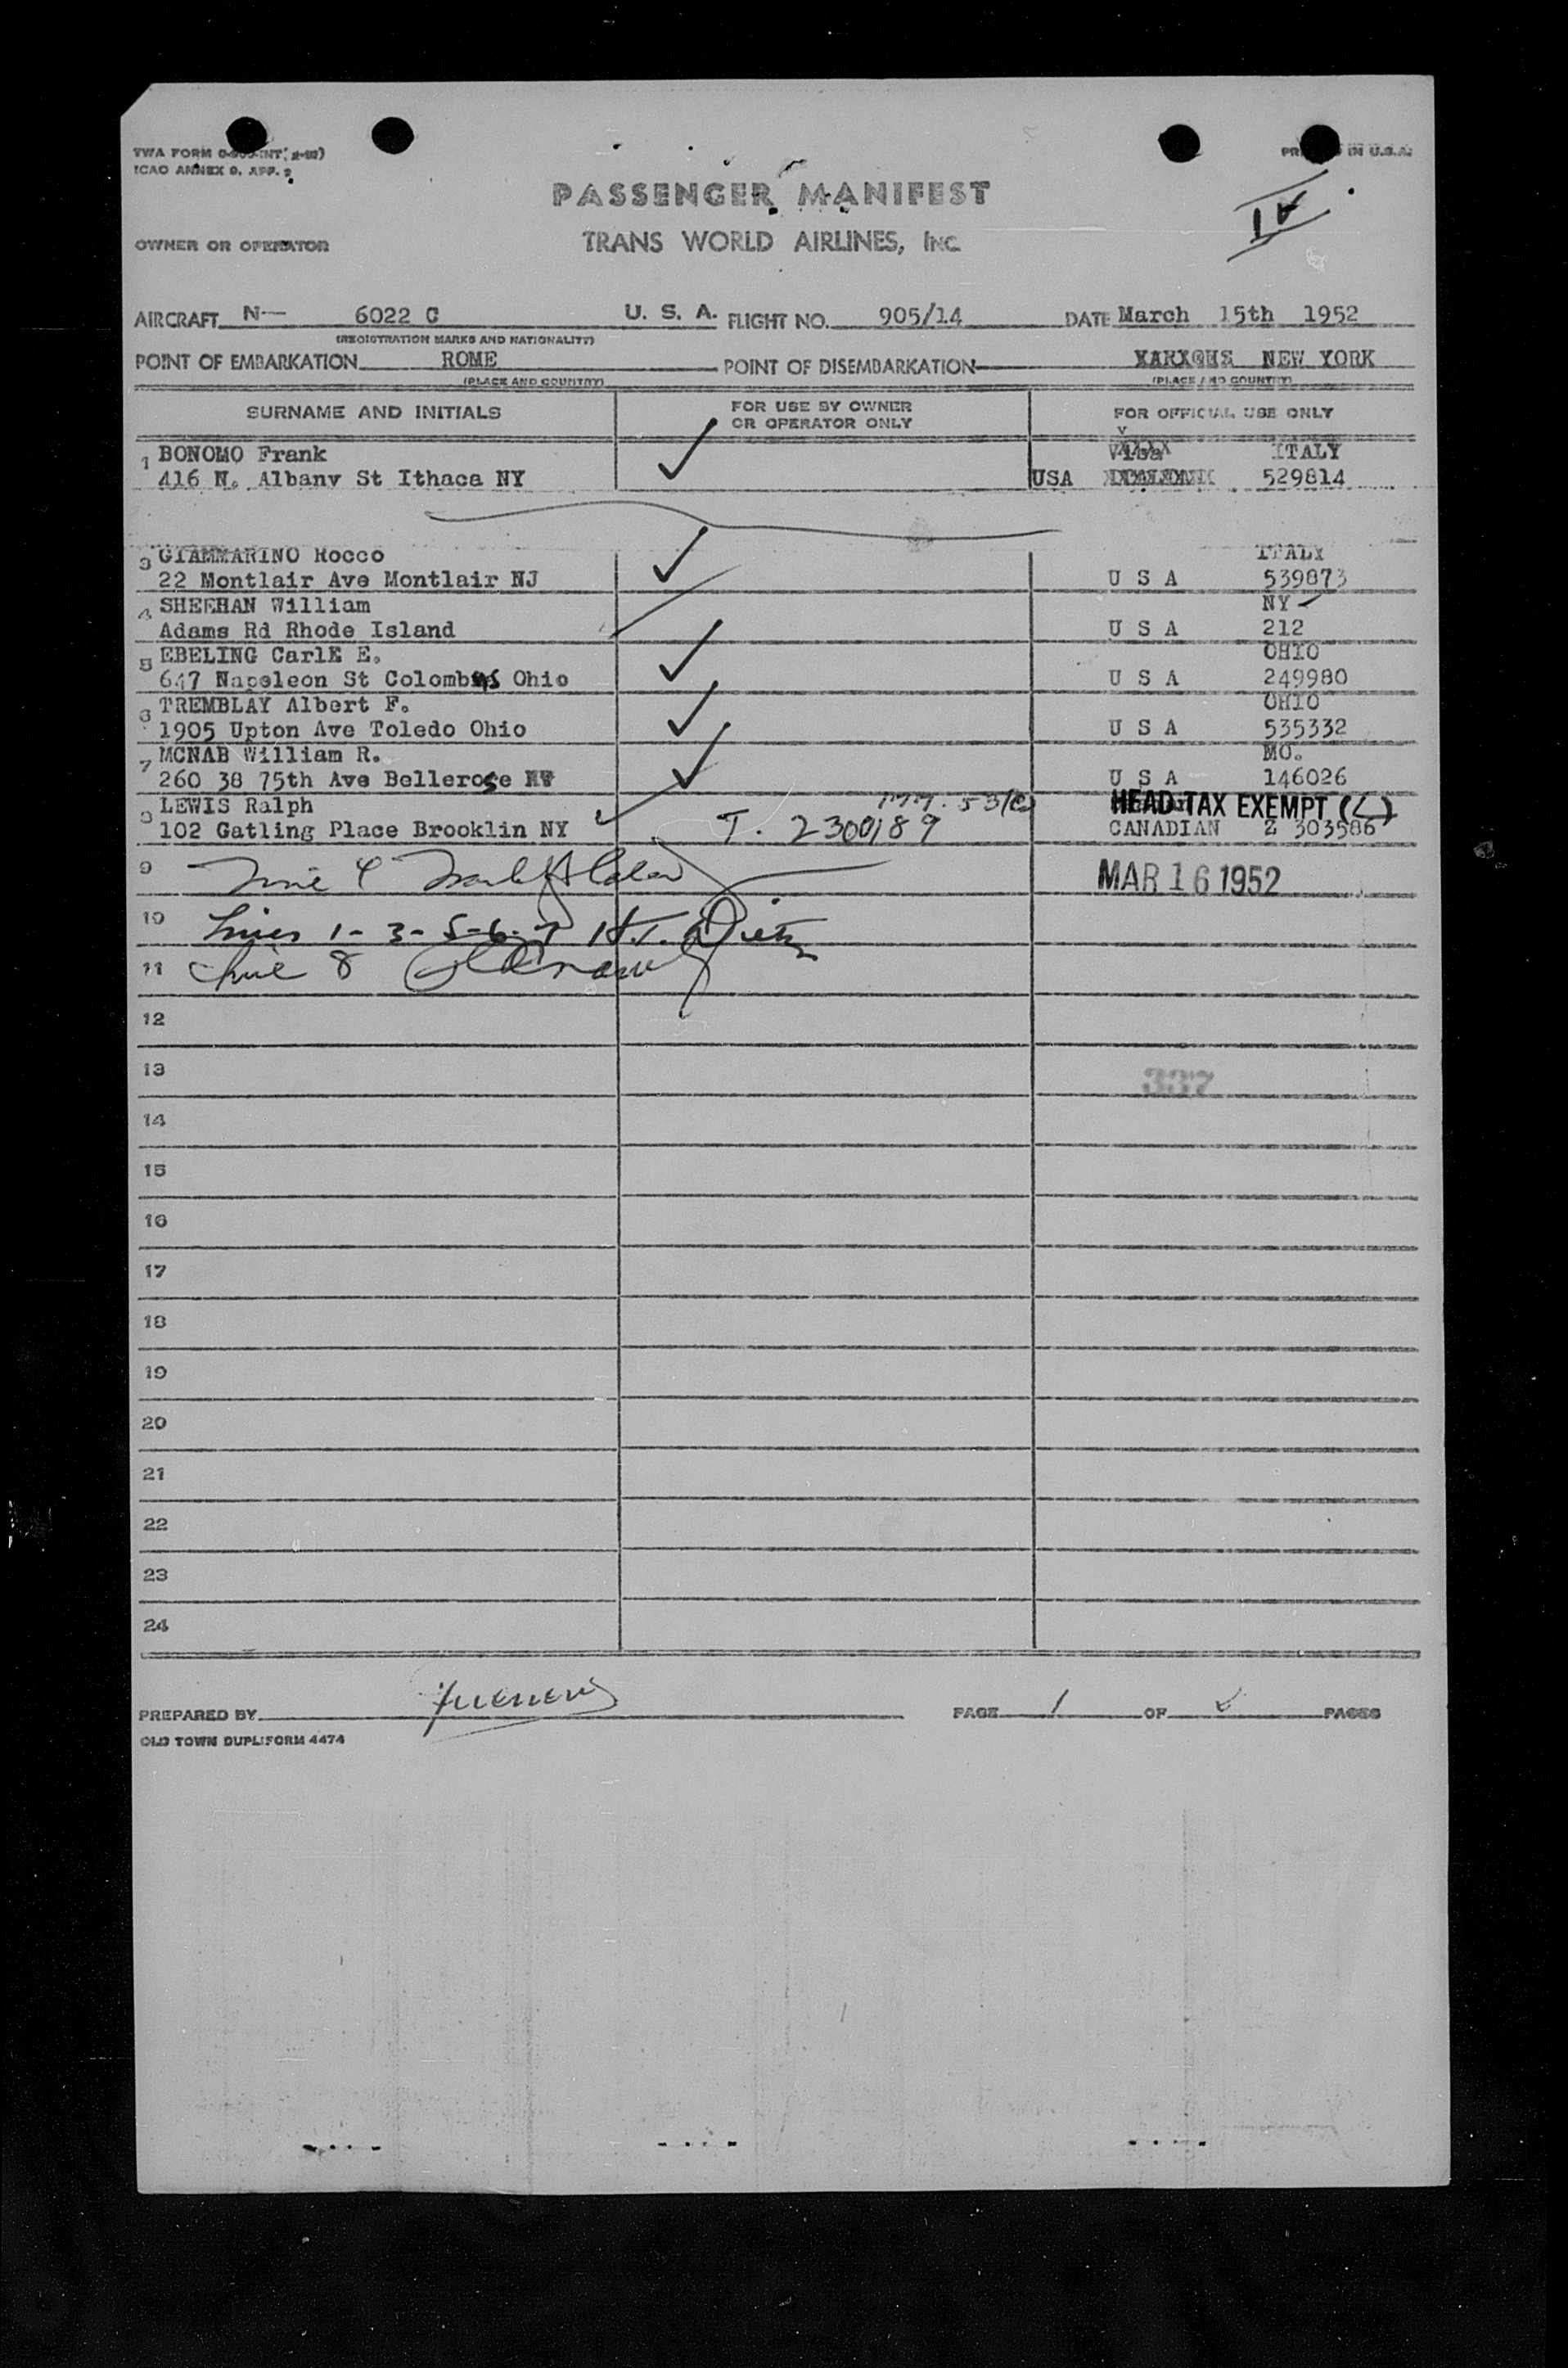 TWA FORM
ICAO ANNEX 9, APP. 2
IN U.S.A.
PASSENGER MANIFEST
IV
OWNER OR OPERATOR
TRANS WORLD AIRLINES, INC.
AIRCRAFT N— 6022 C U. S. A. FLIGHT NO. 905/14 DATE March 15th 1952
(REGISTRATION MARKS AND NATIONALITY)
POINT OF EMBARKATION ROME POINT OF DISEMBARKATION NEW YORK
(PLACE AND COUNTRY) (PLACE AND COUNTRY)
SURNAME AND INITIALS FOR USE BY OWNER OR OPERATOR ONLY FOR OFFICIAL USE ONLY
1 BONOMO Frank ITALY
416 N. Albany St Ithaca NY USA 529814
3 GIAMMARINO Rocco ITALY
22 Montlair Ave Montlair NJ U S A 539873
4 SHEEHAN William NY
Adams Rd Rhode Island U S A 212
5 EBELING CarlE E. OHIO
647 Napoleon St Colombus Ohio U S A 249980
6 TREMBLAY Albert F. OHIO
1905 Upton Ave Toledo Ohio U S A 535332
7 MCNAB William R. MO.
260 38 75th Ave Bellerose NY U S A 146026
8 LEWIS Ralph HEAD TAX EXEMPT (L)
102 Gatling Place Brooklin NY T. 2300189 CANADIAN 2 303586
9 Line 4 MAR 16 1952
10 Lines 1-3-5-6-7 H.T.
11 Line 8
12
13 337
14
15
16
17
18
19
20
21
22
23
24
PREPARED BY PAGE 1 OF PAGES
OLD TOWN DUPLIFORM 4474